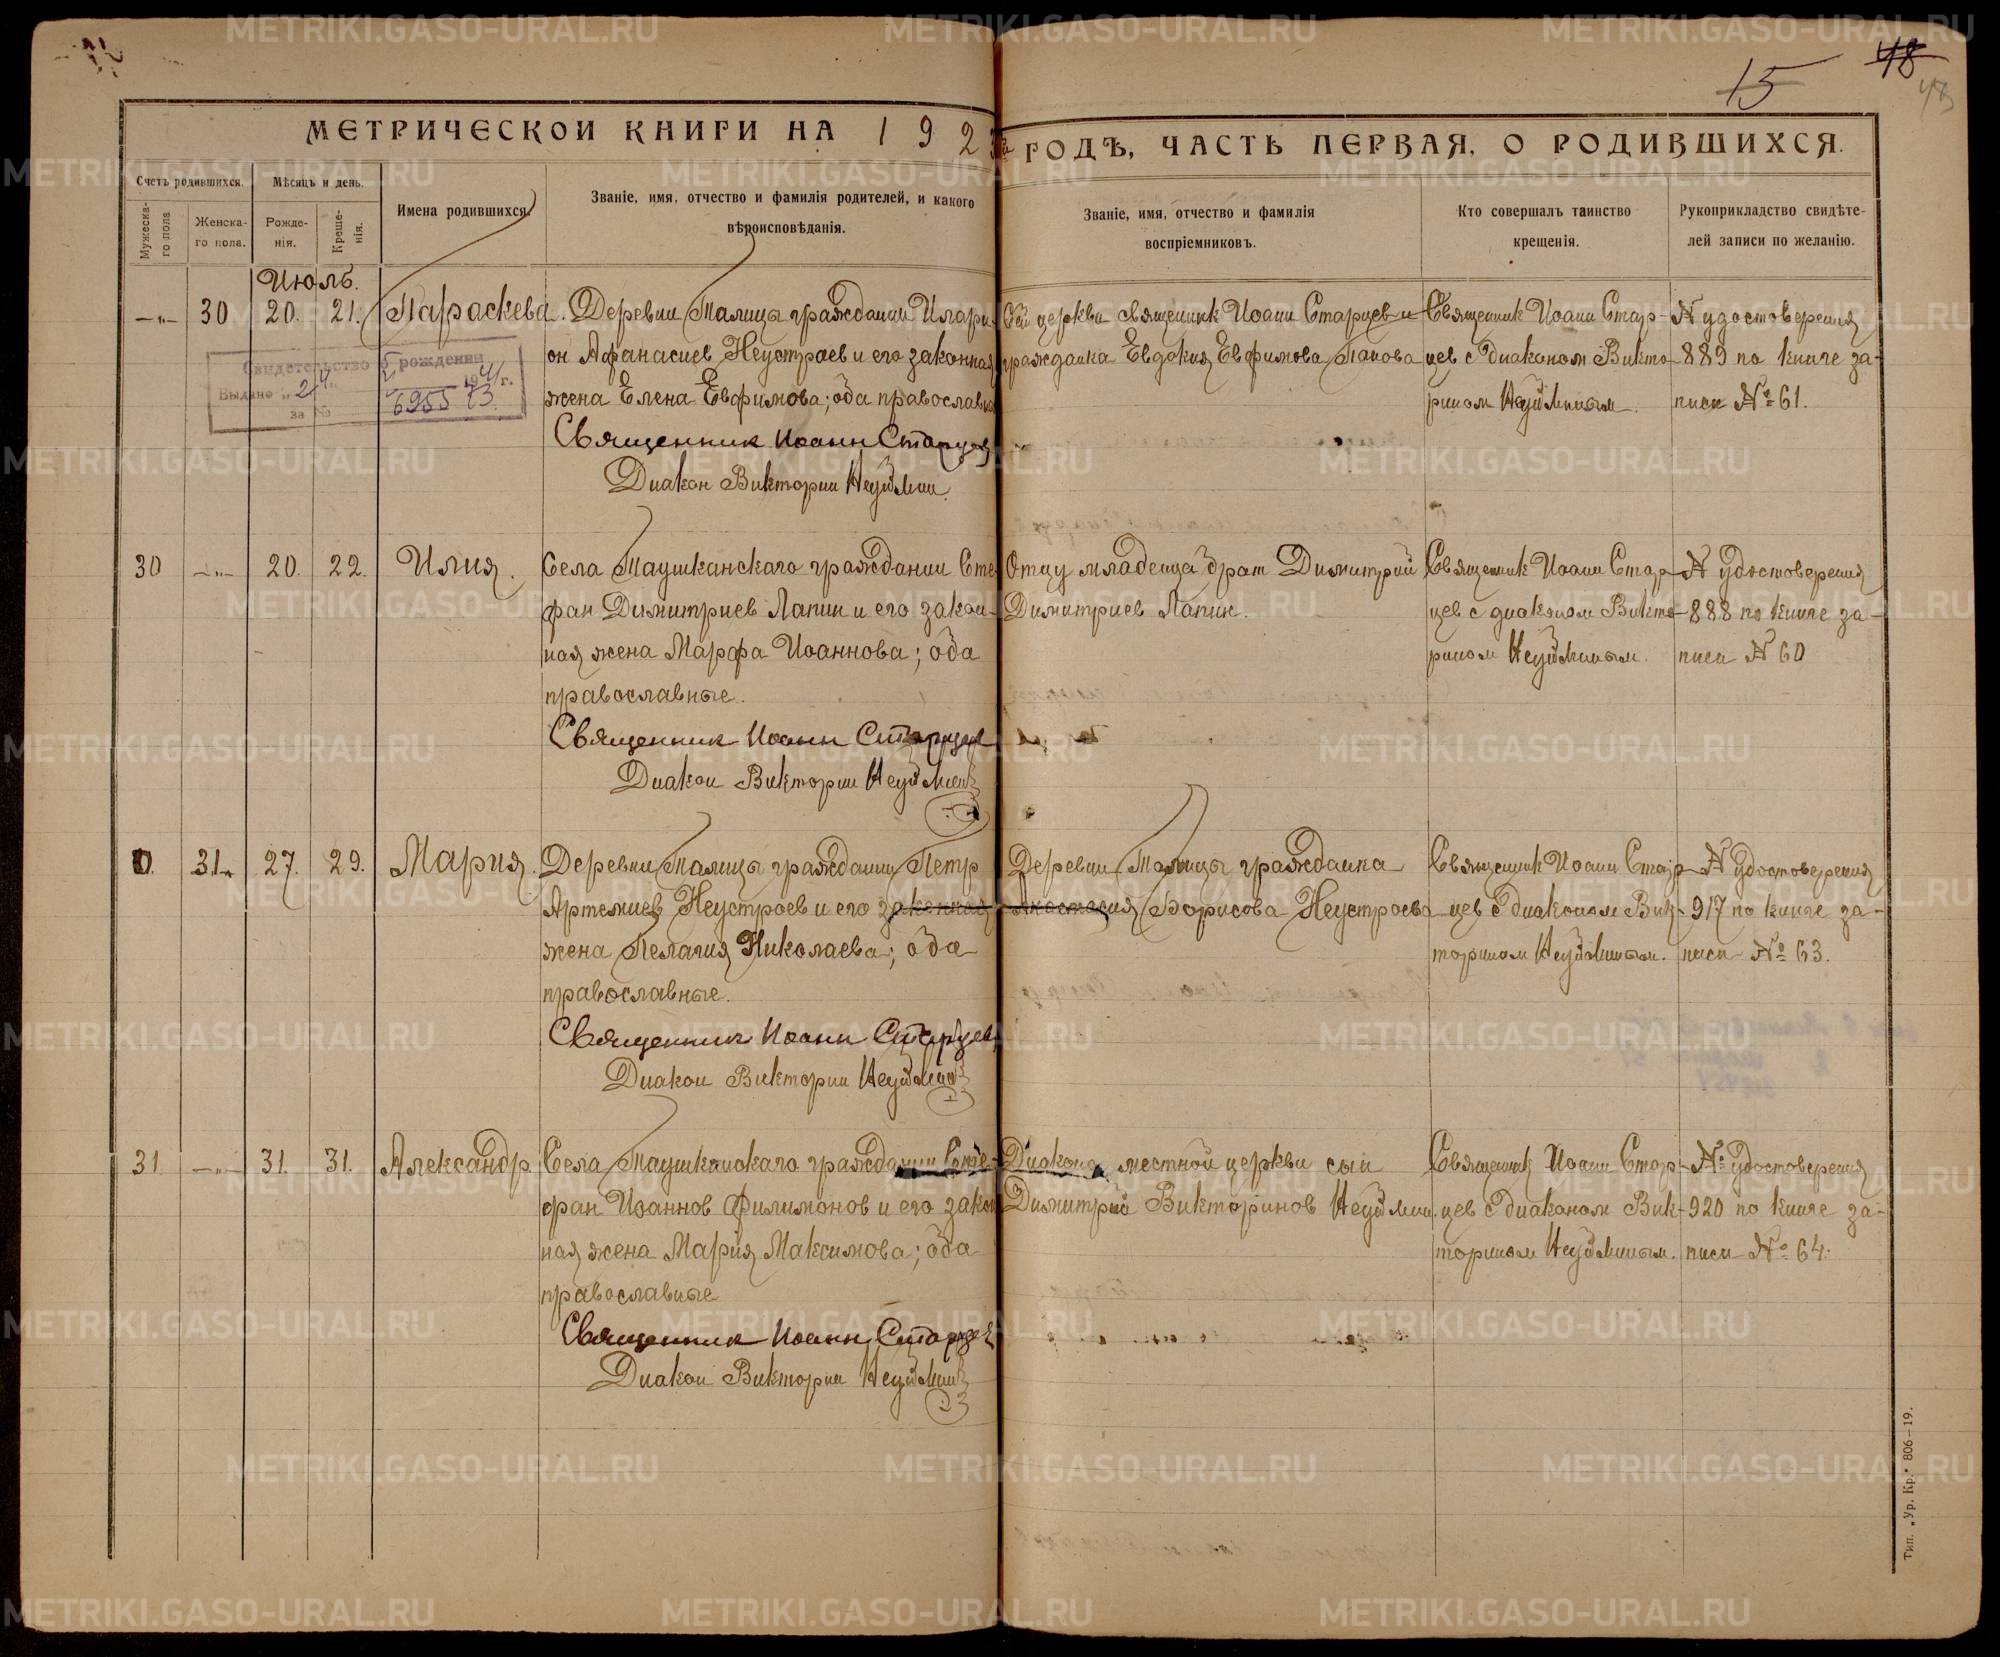 15
48
МЕТРИЧЕСКОЙ КНИГИ НА 1923й ГОДЪ, ЧАСТЬ ПЕРВАЯ, О РОДИВШИХСЯ.
Счетъ родившихся.
Мужеска-го пола
Женска-го пола.
Мѣсяцъ и день.
Рожде-нія.
Креще-нія.
Имена родившихся.
Званіе, имя, отчество и фамилія родителей, и какого
вѣроисповѣданія.
Званіе, имя, отчество и фамилія
воспріемниковъ.
Кто совершалъ таинство
крещенія.
Рукоприкладство свидѣте-
лей записи по желанію.
Июль.
—„— 30 20. 21. Параскева.
Деревни Талицы гражданин Илари-
он Афанасиев Неустроев и его законная
жена Елена Евфимова; оба православные
Священник Иоанн Старцев
Диакон Викторин Неуймин.
Сей церкви священник Иоанн Старцев и
гражданка Евдокия Евфимова Попова
Священник Иоанн Стар-
цев с диаконом Викто-
рином Неуйминым.
№ удостоверения
889 по книге за-
писи № 61.
Свидетельство о рождении
Выдано „24“ 1941 г.
за №
30 —„— 20. 22. Илия.
Села Таушканскаго гражданин Сте-
фан Димитриев Лапин и его закон-
ная жена Марфа Иоаннова; оба
православные.
Священник Иоанн Старцев
Диакон Викторин Неуймин
Отцу младенца брат Димитрий
Димитриев Лапин.
Священник Иоанн Стар-
цев с диаконом Викто-
рином Неуйминым.
№ удостоверения
888 по книге за-
писи № 60
31. 27. 29. Мария.
Деревни Талицы гражданин Петр
Артемиев Неустроев и его законная
жена Пелагия Николаева; оба
православные.
Священник Иоанн Старцев
Диакон Викторин Неуймин
Деревни Талицы гражданка
Анастасия Борисова Неустроева
Священник Иоанн Стар-
цев с диаконом Вик-
торином Неуйминым.
№ удостоверения
917 по книге за-
писи № 63.
31. —„— 31. 31. Александр.
Села Таушканскаго гражданин Сте-
фан Иоаннов Филимонов и его закон
ная жена Мария Максимова; оба
православные
Священник Иоанн Старцев
Диакон Викторин Неуймин
Диакона местной церкви сын
Димитрий Викторинов Неуймин.
Священник Иоанн Стар-
цев с диаконом Вик-
торином Неуйминым.
№ удостоверения
920 по книге за-
писи № 64.
Тип. „Ур. Кр.“ 806—19.
METRIKI.GASO-URAL.RU